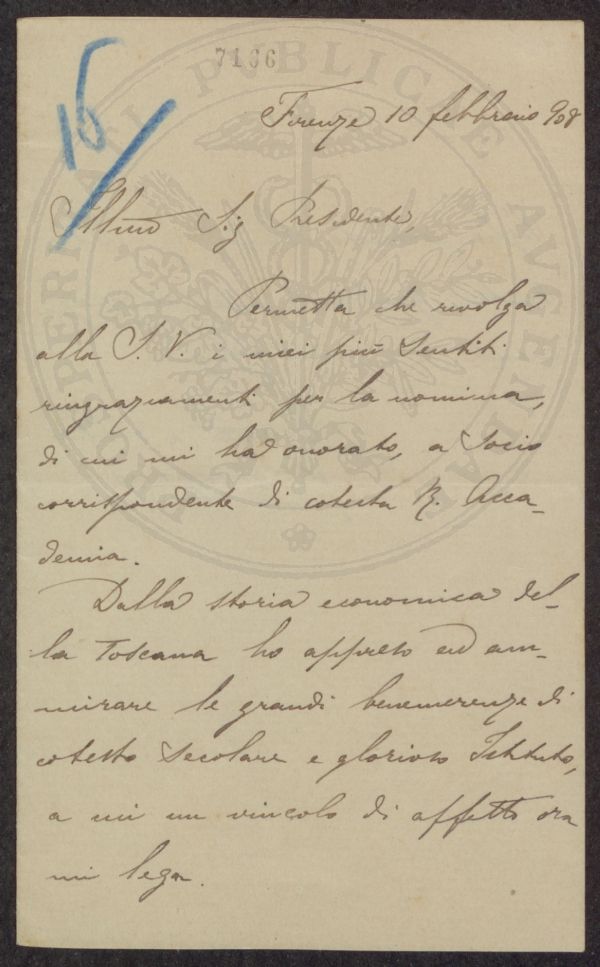 7166
16
Firenze 10 febbraio 908
Illmo Sig Presidente,
Permetta che rivolga
alla S. V. i miei più sentiti
ringraziamenti per la nomina,
di cui mi ha onorato, a Socio
corrispondente di cotesta R. Acca-
demia.
Dalla storia economica del-
la Toscana ho appreso ad am-
mirare le grandi benemerenze di
cotesto secolare e glorioso Istituto,
a cui un vincolo di affetto ora
mi lega.
PROSPERITATI PUBLICAE AUGENDAE